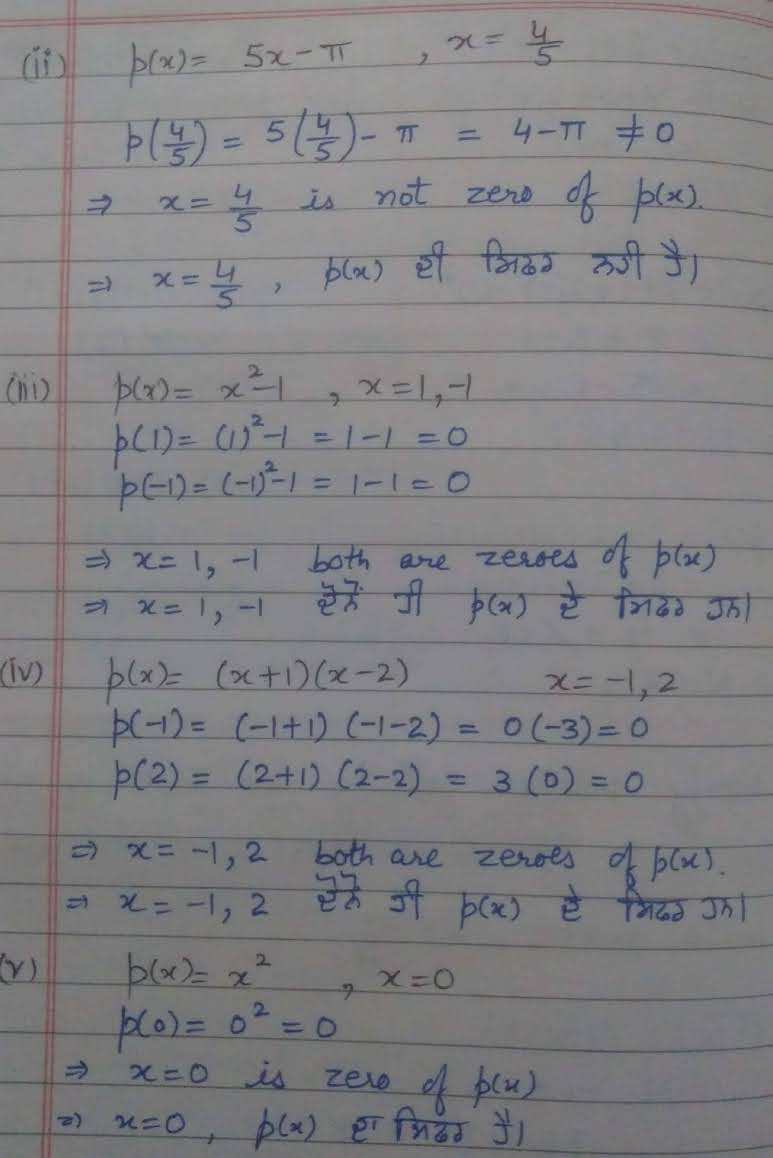 (ii) p(x) = 5x - π , x = 4/5
p(4/5) = 5(4/5) - π = 4 - π ≠ 0
⇒ x = 4/5 is not zero of p(x).
⇒ x = 4/5 , p(x) ਦੀ ਸਿਫਰ ਨਹੀ ਹੈ।
(iii) p(x) = x² - 1 , x = 1, -1
p(1) = (1)² - 1 = 1 - 1 = 0
p(-1) = (-1)² - 1 = 1 - 1 = 0
⇒ x = 1, -1 both are zeroes of p(x)
⇒ x = 1, -1 ਦੋਨੋਂ ਹੀ p(x) ਦੇ ਸਿਫਰ ਹਨ।
(iv) p(x) = (x+1)(x-2) x = -1, 2
p(-1) = (-1+1) (-1-2) = 0(-3) = 0
p(2) = (2+1) (2-2) = 3(0) = 0
⇒ x = -1, 2 both are zeroes of p(x).
⇒ x = -1, 2 ਦੋਨੋਂ ਹੀ p(x) ਦੇ ਸਿਫਰ ਹਨ।
(v) p(x) = x² , x = 0
p(0) = 0² = 0
⇒ x = 0 is zero of p(x)
⇒ x = 0 , p(x) ਦਾ ਸਿਫਰ ਹੈ।